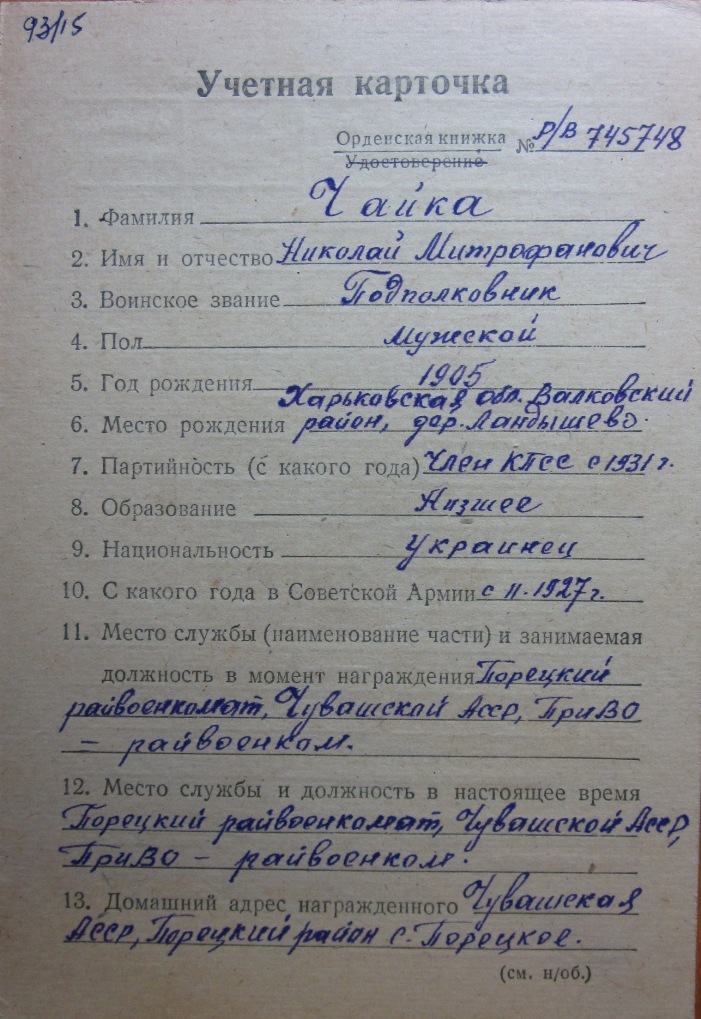 93/15
Учетная карточка
Орденская книжка
Удостоверение № Р/В 745748
1. Фамилия Чайка
2. Имя и отчество Николай Митрофанович
3. Воинское звание Подполковник
4. Пол Мужской
5. Год рождения 1905
Харьковская обл. Валковский
6. Место рождения район, дер. Ландышево.
7. Партийность (с какого года) Член КПСС с 1931 г.
8. Образование Низшее
9. Национальность Украинец
10. С какого года в Советской Армии с 11.1927 г.
11. Место службы (наименование части) и занимаемая
должность в момент награждения Порецкий
райвоенкомат, Чувашской АССР, ПриВО
– райвоенком.
12. Место службы и должность в настоящее время
Порецкий райвоенкомат, Чувашской АССР,
ПриВО – райвоенком.
13. Домашний адрес награжденного Чувашская
АССР, Порецкий район с. Порецкое.
(см. н/об.)